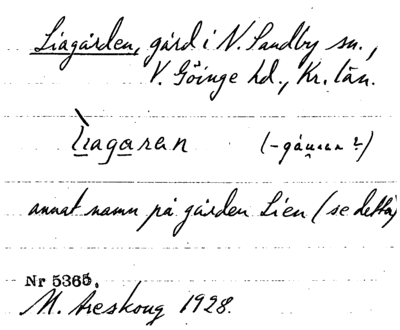 Liagården, gård i N. Sandby sn.,
V. Göinge hd., Kr. län.
Liagaran (-gá
annat namn på gården Lien (se detta)
Nr 5365.
M. Areskoug 1928.